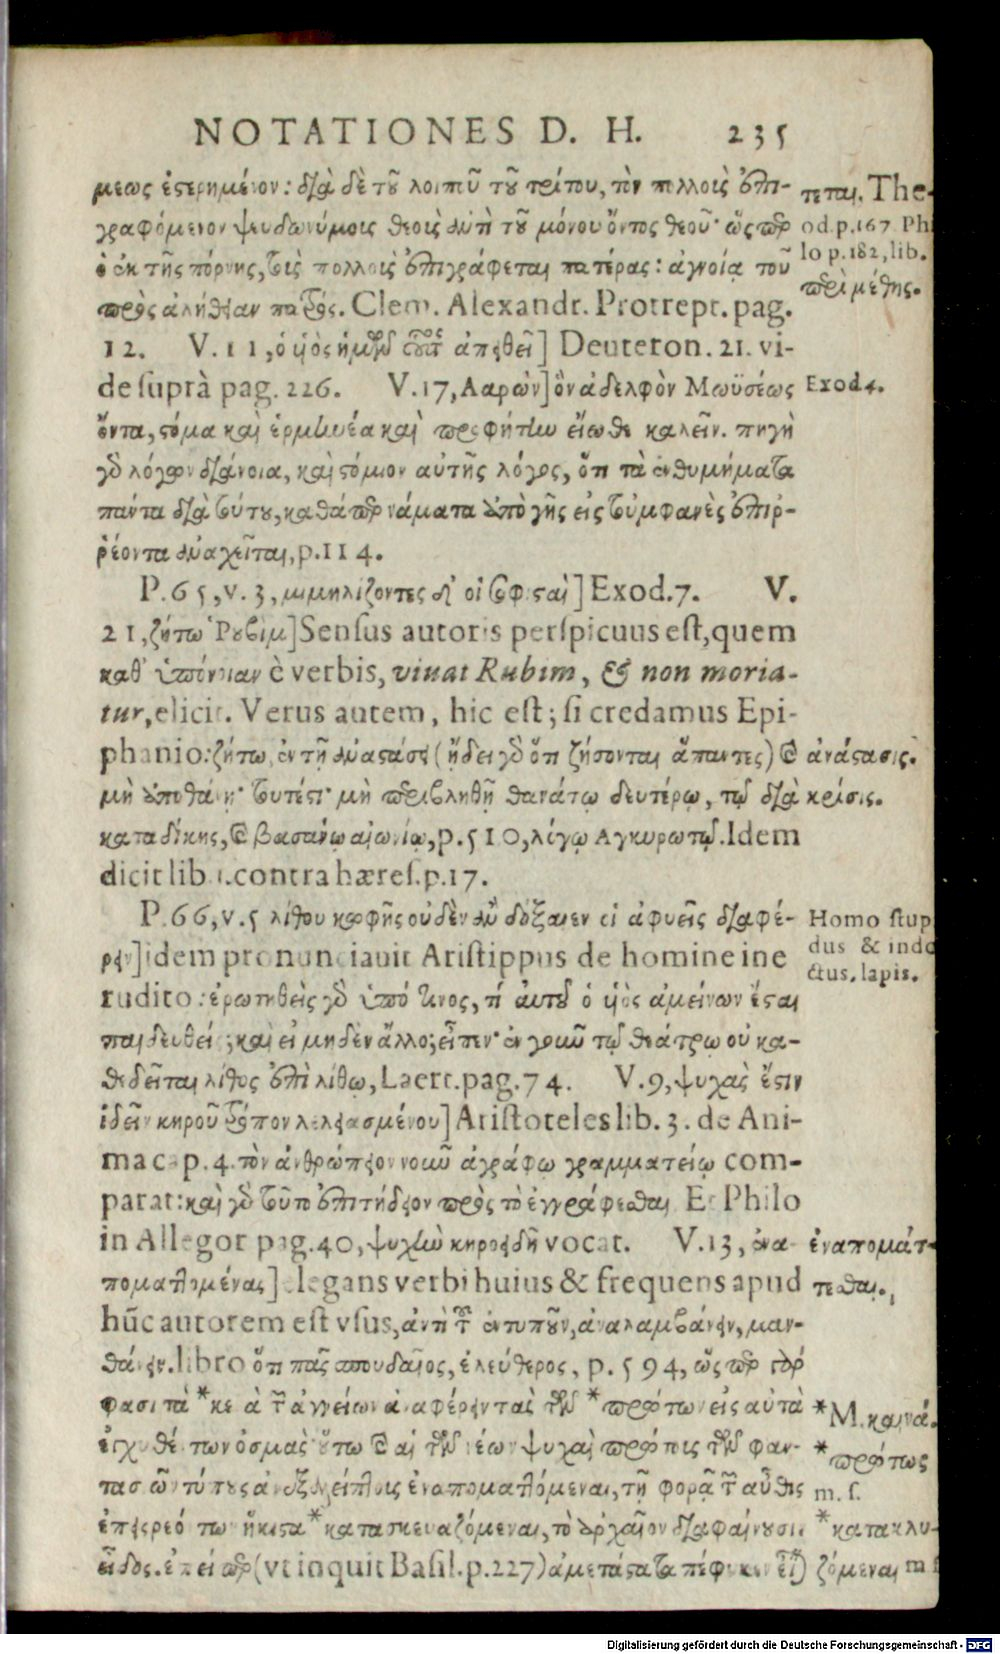 NOTATIONES D. H. 235
μεως ἐστερημένον: διὰ δὲ τοῦ λοιποῦ τοῦ τρίτου, τὸν πολλοῖς ἐπι-
γραφόμενον ψευδωνύμοις θεοῖς ἀντὶ τοῦ μόνου ὄντος θεοῦ· ὥσπερ
ὁ ἐκ τῆς πόρνης, τοὺς πολλοὺς ἐπιγράφεται πατέρας: ἀγνοίᾳ τοῦ
πρὸς ἀλήθειαν πατρός. Clem. Alexandr. Protrept. pag.
12. V. 11, ὁ υἱὸς ἡμῶν οὗτος ἀπειθεῖ] Deuteron. 21. vi-
de ſuprà pag. 226. V. 17, Ααρών] ὃν ἀδελφὸν Μωϋσέως
ὄντα, στόμα καὶ ἑρμηνέα καὶ προφήτην εἴωθε καλεῖν. πηγὴ
γὰρ λόγων διάνοια, καὶ στόμιον αὐτῆς λόγος, ὅτι τὰ ἐνθυμήματα
πάντα διὰ τούτου, καθάπερ νάματα ἀπὸ γῆς εἰς τοὐμφανὲς ἐπιρ-
ρέοντα ἀναχεῖται, p. 114.
P. 65, v. 3, μιμηλίζοντες δ' οἱ σοφισταὶ] Exod. 7. V.
21, ζήτω Ῥουβιμ] Senſus autoris perſpicuus eſt, quem
καθ' ὑπόνοιαν è verbis, vivat Rubim, & non moria-
tur, elicit. Verus autem, hic eſt; ſi credamus Epi-
phanio: ζήτω, ἐν τῇ ἀναστάσει (ᾔδει γὰρ ὅτι ζήσονται ἅπαντες) καὶ
μὴ ἀποθάνῃ· τουτέστι· μὴ περιβληθῇ θανάτῳ δευτέρῳ, τῷ διὰ
καταδίκης, καὶ βασάνῳ αἰωνίῳ, p. 510, λόγῳ Αγκυρωτῷ. Idem
dicit lib 1. contra hæreſ. p. 17.
P. 66, v. 5 λίθου κωφῆς οὐδὲν ἂν δόξαιεν οἱ ἀφυεῖς διαφέ-
ρειν] idem pronunciavit Ariſtippus de homine ine
rudito: ἐρωτηθεὶς γὰρ ὑπό τινος, τί αὐτοῦ ὁ υἱὸς ἀμείνων ἔσται
παιδευθείς; καὶ εἰ μηδὲν ἄλλο, εἶπεν· ἐν γοῦν τῷ θεάτρῳ οὐ κα-
θεδεῖται λίθος ἐπὶ λίθῳ, Laert. pag. 74. V. 9, ψυχὰς ἔστιν
ἰδεῖν κηροῦ τρόπον λελειασμένου] Ariſtoteles lib. 3. de Ani-
ma cap. 4. τὸν ἀνθρώπειον νοῦν ἀγράφῳ γραμματείῳ com-
parat: καὶ γὰρ τοῦτο ἐπιτήδειον πρὸς τὸ ἐγγράφεσθαι. Et Philo
in Allegor pag. 40, ψυχὴν κηροειδῆ vocat. V. 13, ἐνα-
ποματτομένας] elegans verbi huius & frequens apud
hūc autorem eſt vſus, ἀντὶ τοῦ ἐντυποῦν, ἀναλαμβάνειν, μαν-
θάνειν. libro ὅτι πᾶς σπουδαῖος, ἐλεύθερος, p. 594, ὥσπερ γάρ
φασι τὰ * κε ὰ τῶν ἀγγείων ἀναφέρειν τὰς τῶν * πρώτων εἰς αὐτὰ
ἐγχυθέντων ὀσμὰς οὕτω καὶ αἱ τῶν νέων ψυχαὶ πρώτους τῶν φαν-
τασιῶν τύπους ἀνεξαλείπτους ἐναποματτόμεναι, τῇ φορᾷ τῶν αὖθις
ἐπεισρεόντων ἥκιστα * κατασκευαζόμεναι, τὸ ἀρχαῖον διαφαίνουσιν
εἶδος. ἐπείπερ (vt inquit Baſil. p. 227) ἀμετάστατα πέφυκεν εἶναι
τεται. The-
od. p. 167 Phi
lo p. 182, lib.
περὶ μέθης.
Exod 4.
ἀνάστασις.
κρίσις.
Homo ſtup
dus & indo
ctus, lapis.
ἐναπομάτ-
τεσθαι.
* M. καινά.
* πρώτως
m. ſ.
* κατακλυ-
ζόμεναι m ſ
Digitalisierung gefördert durch die Deutsche Forschungsgemeinschaft - DFG